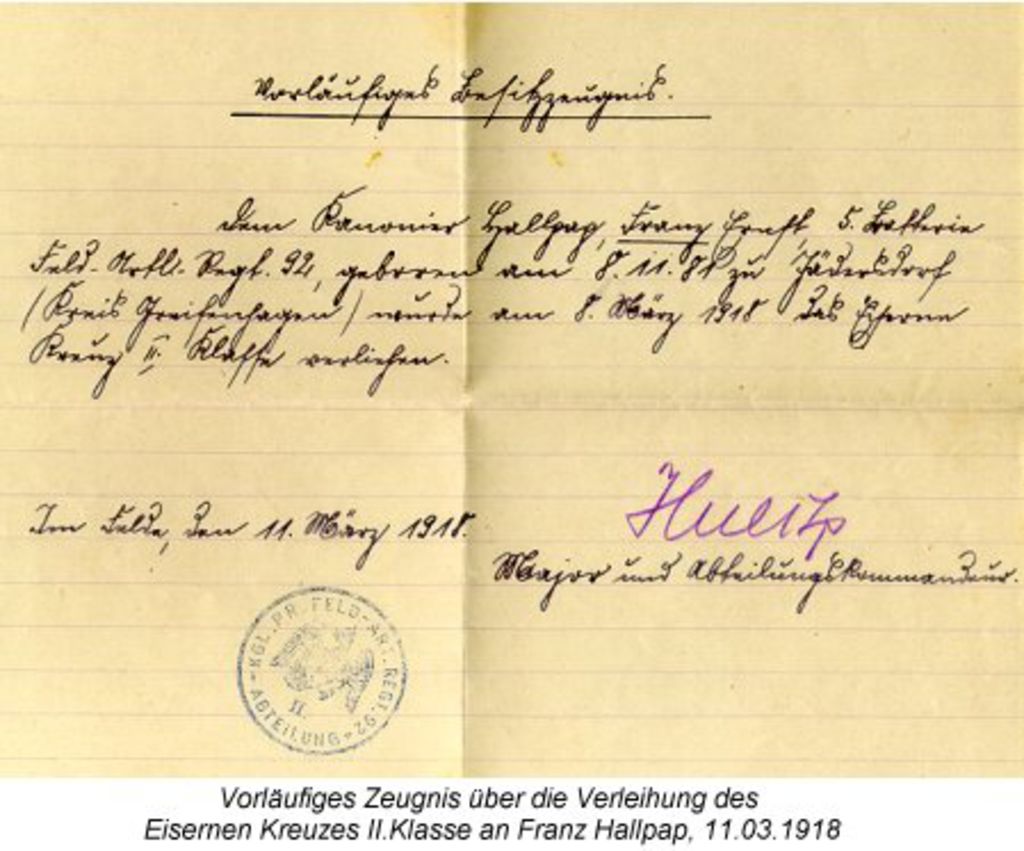 Vorläufiges Besitzzeugnis.
Dem Kanonier Hallpap, Franz Ernst, 5. Batterie
Feld-Artl.-Regt. 92, geboren am 8.11.81 zu
(Kreis Greifenhagen) wurde am 8. März 1918 das Eiserne
Kreuz II. Klasse verliehen.
Im Felde, den 11. März 1918.
Major und Abteilungskommandeur.
KGL. PR. FELD-ART. REGT. 92
II.
ABTEILUNG
Vorläufiges Zeugnis über die Verleihung des
Eisernen Kreuzes II.Klasse an Franz Hallpap, 11.03.1918